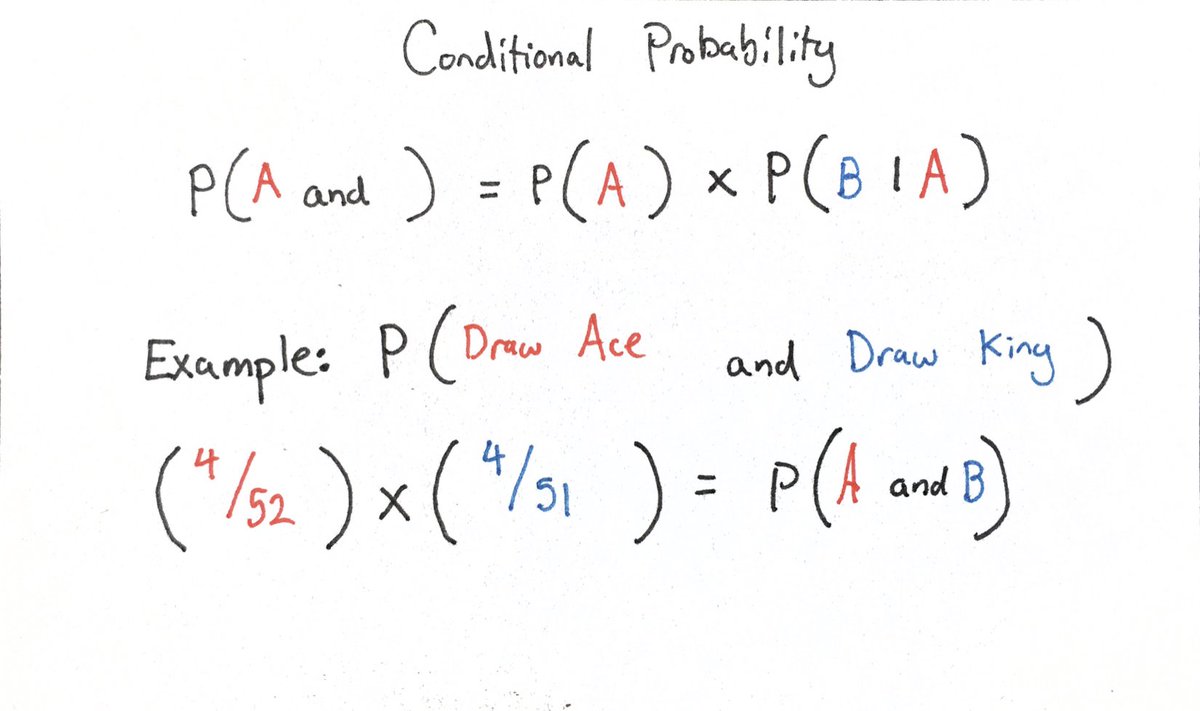 Conditional Probability
P(A and ) = P(A) × P(B | A)
Example: P(Draw Ace and Draw King)
(4/52) × (4/51) = P(A and B)